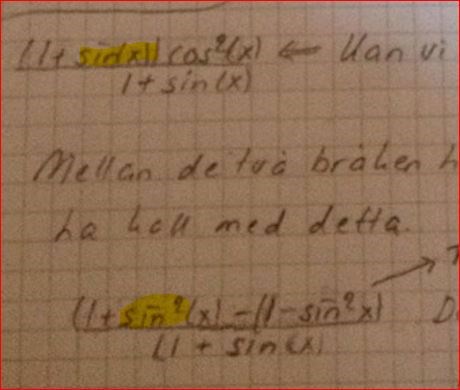 (1+ sin(x)) cos²(x) ← Kan vi
1 + sin(x)
Mellan de två bråken h
ha koll med detta.
(1+sin²(x) - (1-sin²x)
(1 + sin(x)